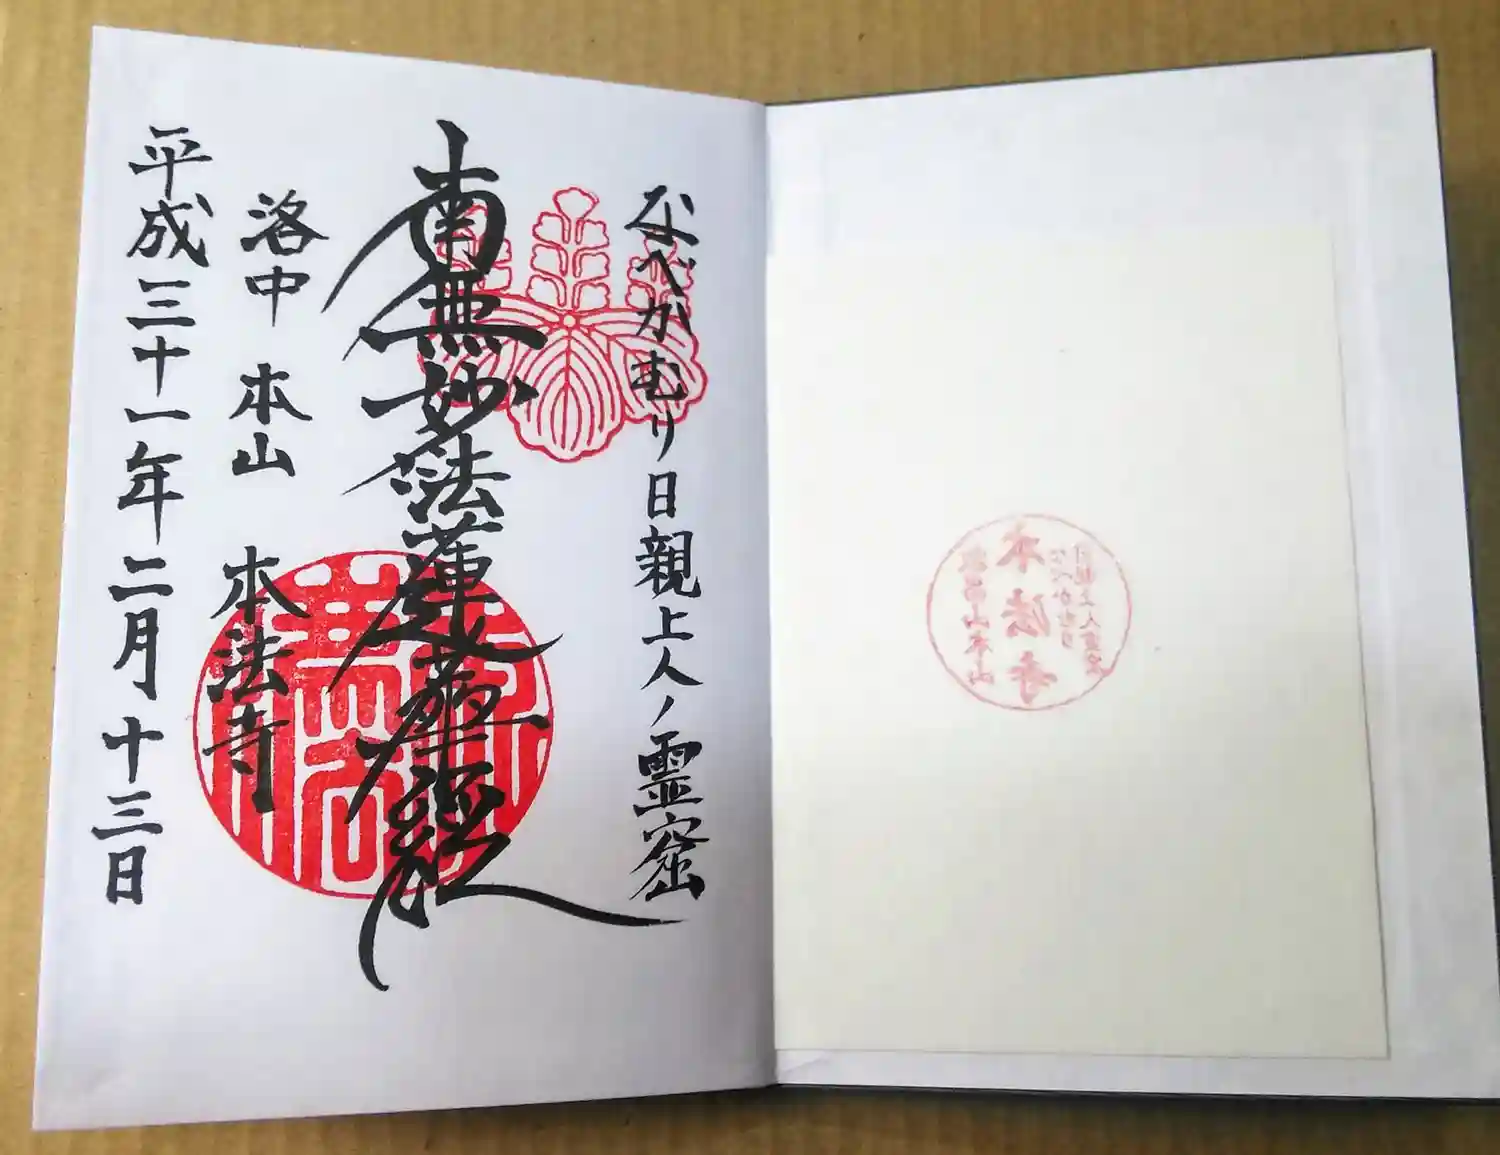 なべかむり日親上人ノ霊窟
南無妙法蓮華経
洛中 本山 本法寺
平成三十一年二月十三日
本法寺